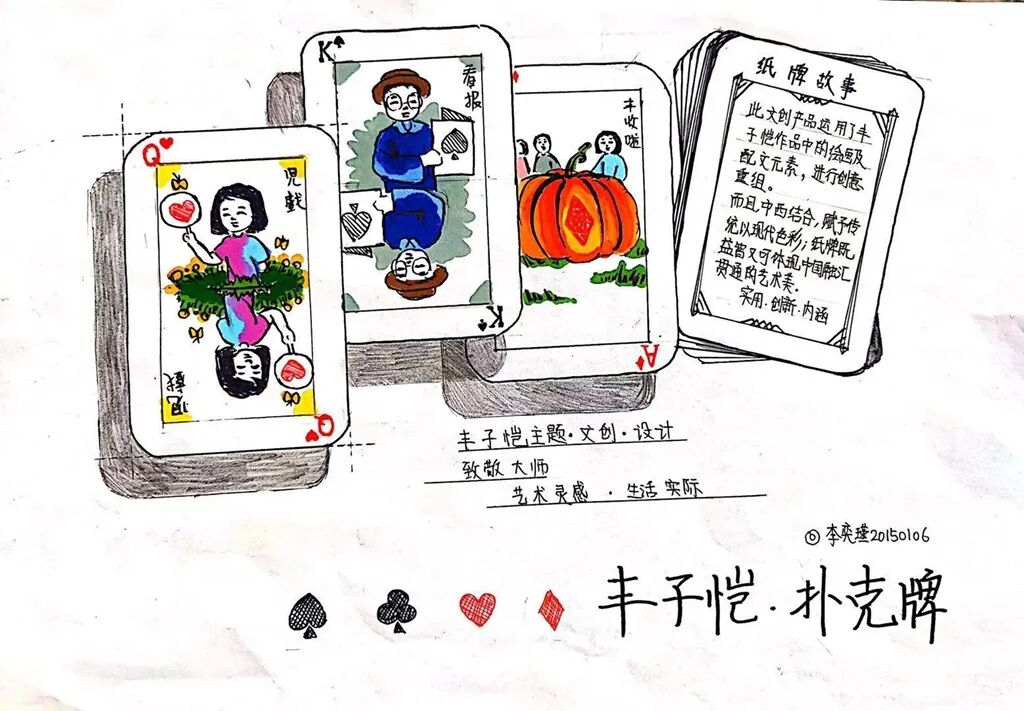 Q
儿戏
儿戏
Q
K
看报
K
丰收啦
A
纸牌故事
此文创产品运用了丰
子恺作品中的绘画及
配文元素，进行创意
重组。
而且中西结合，赋予传
统以现代色彩；纸牌既
益智又可体现中国融汇
贯通的艺术美。
实用·创新·内涵
丰子恺主题·文创·设计
致敬大师
艺术灵感·生活实际
◎李奕瑾20150106
丰子恺·扑克牌